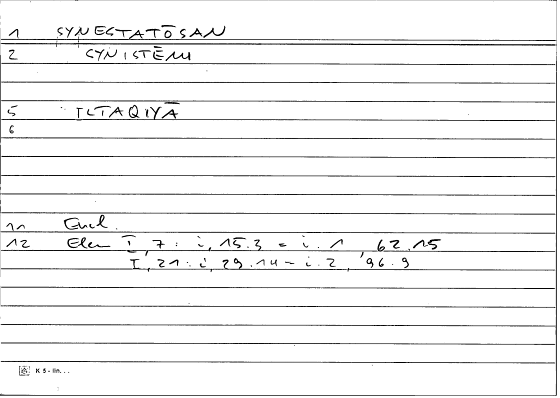 1 SYNESTATŌSAN
2 SYNISTĒMI
5 ILTAQIYĀ
6
11 Eucl.
12 Elem I, 7 : i, 15.3 = i. 1, 62.15
I, 21 : i, 29.14 = i. 2, 96.9
K 5 - lin...